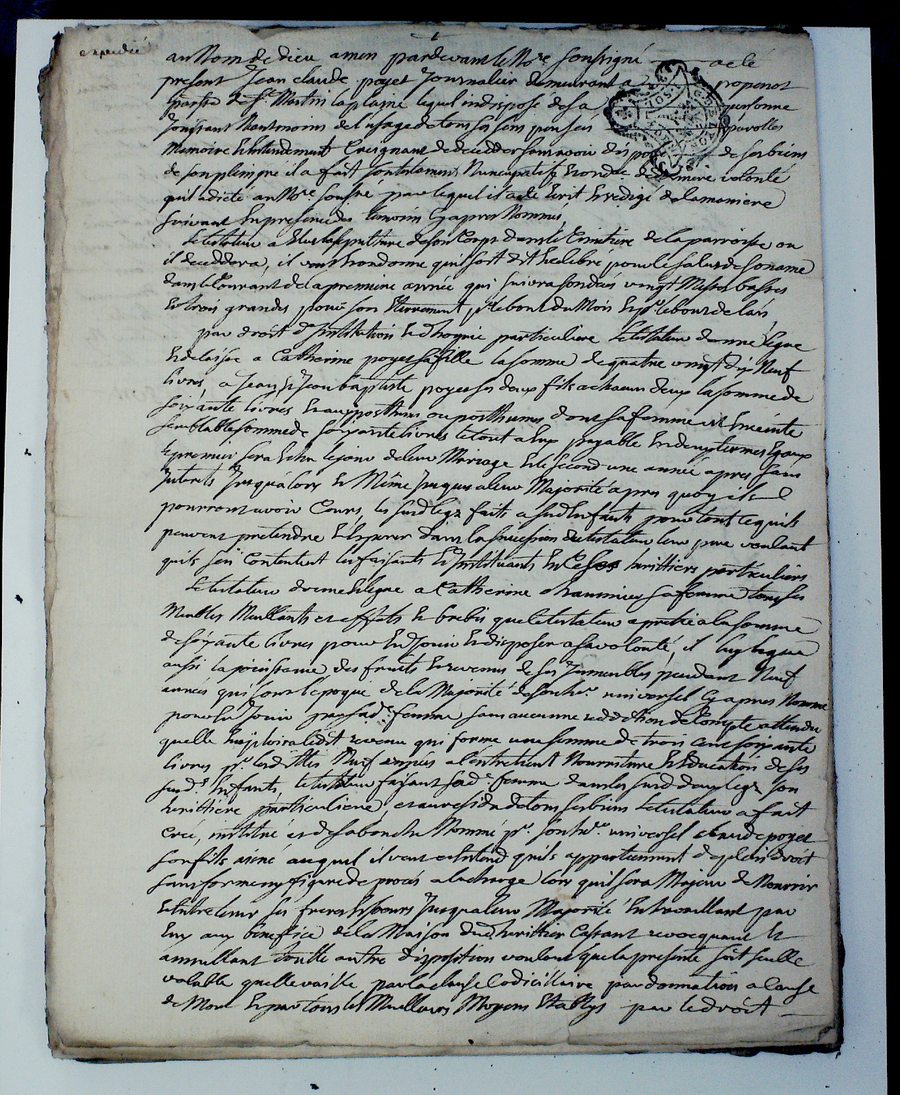 expedié
au Nom de dieu amen pardevant le No.re soussigné a eté
present Jean claude poyet Journalier demeurant a propenot
paroisse de St. Martin la plaine lequel indisposé de sa personne
Jouissant Neantmoins de l'usage de tous ses sens pensées parolles
Memoire & Entendement Craignant de decedder sans avoir disposé de ses biens
de son plein gré il a fait son testament Nuncupatif & ordce de derniere volonté
quil a dicté au No.re sousné par lequel il a eté Ecrit & redigé de la maniere
suivante En presence des temoins Cy apres Nommes
Le testateur a Elu la sepulture de son Corps dans le Cimetiere de la parroisse ou
il deceddera, il veut & ordonne quil soit dit & celebré pour le salut de son ame
dans le Courant de la premiere année qui suivra son deces vingt Messes basses
Et trois grandes pour son Enterrement, pr le bout du Mois & pr le bout de l'an
par droit d'Institution & d'hoirie particuliere Le testateur donne legue
Et delaisse a Catherine poyet sa fille la somme de quatre vingt dix Neuf
livres, a Jean & Jean baptiste poyet ses deux fils a chacun deux la somme de
soixante livres & au posthume ou posthumes dont sa femme est Enceinte
semblable somme de soixante livres le tout a Eux payable En deux termes Egaux
le premier sera Echu le jour de leur Mariage & le second une année apres sans
Interets Jusqualors & Même Jusques a leur Majorité apres quoy ils
pourront avoir Cours, les susd legs faits a susd Enfants pour tout ce quils
peuvent pretendre & Esperer dans la succession du testateur leur pere voulant
quils s'en Contentent les faisants & Instituants En Ce ses herittiers particuliers
Le testateur donne & legue a Catherine sa femme tous ses
Meubles Meublants et effets & brebis que le testateur a prisé a la somme
de soixante livres pour En Jouir & disposer a sa volonté, il luy legue
aussi la jouissance des fruits & revenus de ses Immeubles pendant Neuf
années qui sont l'epoque de la Majorité de son her. universel Cy apres Nommé
pour En Jouir par sad.e femme sans aucunne reddition de Compte attendu
quelle Employera ledit revenu qui forme une somme de trois cens soixante
livres pr lesdittes Neuf années a l'entretient Nourriture & Education de ses
susd.s Enfants, le testateur faisant sad.e femme dans les susd deux legs son
herittiere particuliere, et au residu de tous ses biens Le testateur a fait
Creé, institué et de sa bouche Nommé pr. son her. universel claude poyet
son fils ainé auquel il veut & Entend quils appartiennent de plein droit
sans forme ny figure de procès a la charge lors quil sera Majeur de Nourrir
& Entretenir ses freres & soeurs Jusqua leur Majorité En travaillant par
Eux aux benefice de la Maison dud herittier Cassant revocquant &
annullant toutte autre disposition voulant que la presente soit seulle
valable quelle vaille par la clause Codicillaire par donnation a cause
de Mort & par tous les Meilleurs Moyens Etablys par le droit